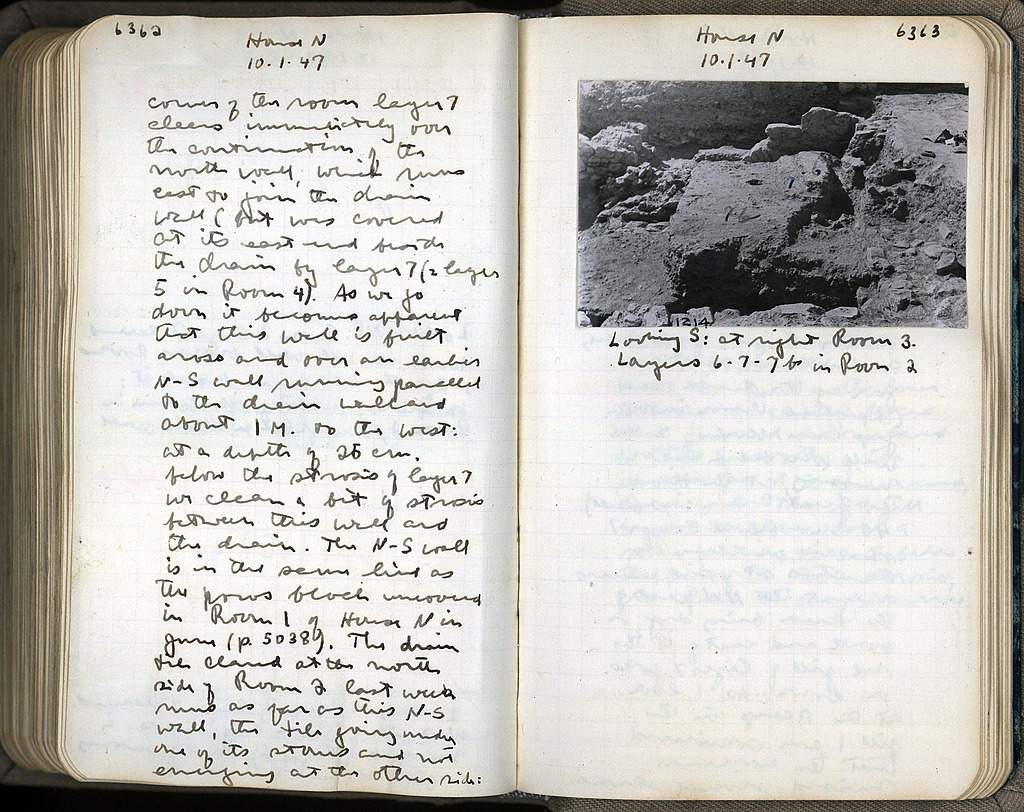 6362
House N
10.1.47
corner of the room layer 7
clears immediately over
the continuation of the
north wall, which runs
east to join the drain
wall (but was covered
at its east end beside
the drain by layer 7 (= layer
5 in Room 4). As we go
down it becomes apparent
that this wall is built
across and over an earlier
N-S wall running parallel
to the drain wall and
about 1 M. to the West:
at a depth of 26 cm.
below the strosis of layer 7
we clean a bit of strosis
between this wall and
the drain. The N-S wall
is in the same line as
the poros block uncovered
in Room 1 of House N in
June (p. 5038). The drain
tile cleared at the north
side of Room 2 last week
runs as far as this N-S
wall, the tile going under
one of its stones and not
emerging at the other side:
6363
House N
10.1.47
7
7b
1214
Looking S: at right Room 3.
Layers 6-7-7b in Room 2